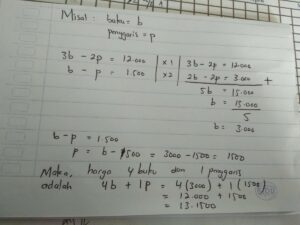 Misal : buku = b
penggaris = p
3b - 2p = 12.000 | x 1 | 3b - 2p = 12.000
b - p = 1.500 | x 2 | 2b - 2p = 3.000 +
5b = 15.000
b = 15.000
5
b = 3.000
b - p = 1.500
p = b - 1500 = 3000 - 1500 = 1500
Maka, harga 4 buku dan 1 penggaris
adalah 4b + 1p = 4 (3000) + 1 (1500)
= 12.000 + 1500
= 13.1500